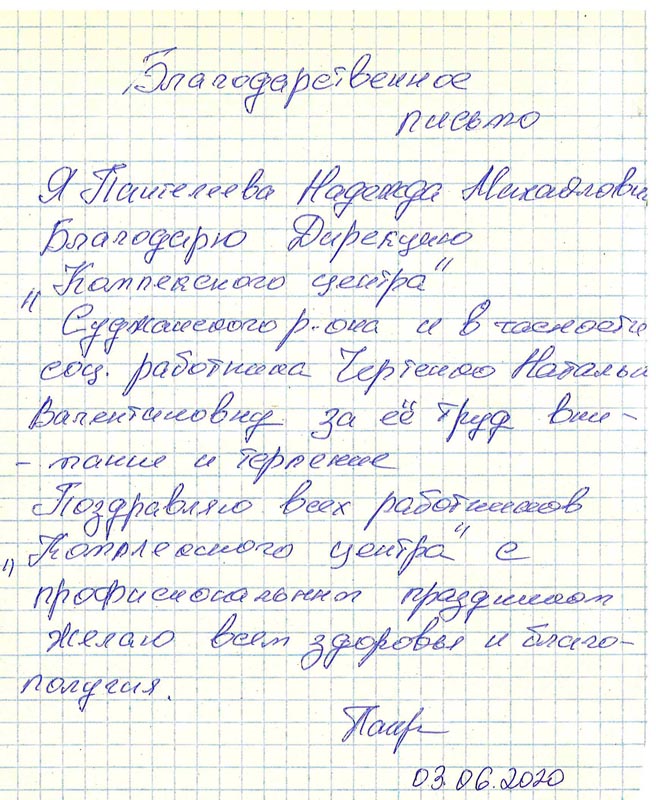 Благодарственное
письмо
Я Пантелеева Надежда Михайловн
Благодарю Дирекцию
"Комплексного центра"
Суджанского р-она и в часности
соц. работника Чертенко Наталью
Валентиновну за её труд вни-
- мание и терпение
Поздравляю всех работников
"Комплексного центра" с
профисиональным праздником
желаю всем здоровья и благо-
получия.
03.06.2020